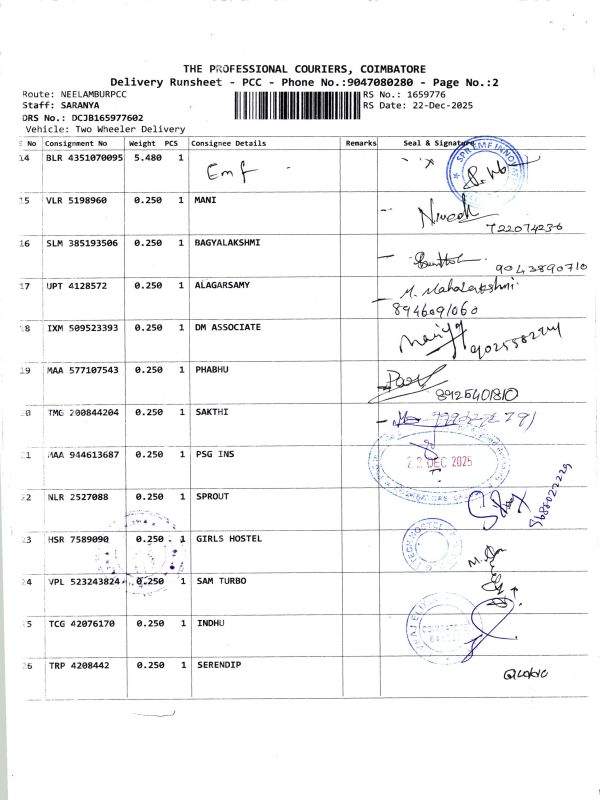 THE PROFESSIONAL COURIERS, COIMBATORE
Delivery Runsheet - PCC - Phone No.:9047080280 - Page No.:2
Route: NEELAMBURPCC RS No.: 1659776
Staff: SARANYA RS Date: 22-Dec-2025
DRS No.: DCJB165977602
Vehicle: Two Wheeler Delivery
No Consignment No Weight PCS Consignee Details Remarks Seal & Signature
14 BLR 4351070095 5.480 1 Emf
15 VLR 5198960 0.250 1 MANI
722074236
16 SLM 385193506 0.250 1 BAGYALAKSHMI
9043890710
17 UPT 4128572 0.250 1 ALAGARSAMY M. Mahalakshmi
8946091060
18 IXM 509523393 0.250 1 DM ASSOCIATE
19 MAA 577107543 0.250 1 PHABHU
8925401810
20 TMG 200844204 0.250 1 SAKTHI
21 MAA 944613687 0.250 1 PSG INS
22 DEC 2025
22 NLR 2527088 0.250 1 SPROUT
9688022229
23 HSR 7589090 0.250 1 GIRLS HOSTEL
24 VPL 523243824 0.250 1 SAM TURBO
25 TCG 42076170 0.250 1 INDHU
26 TRP 4208442 0.250 1 SERENDIP